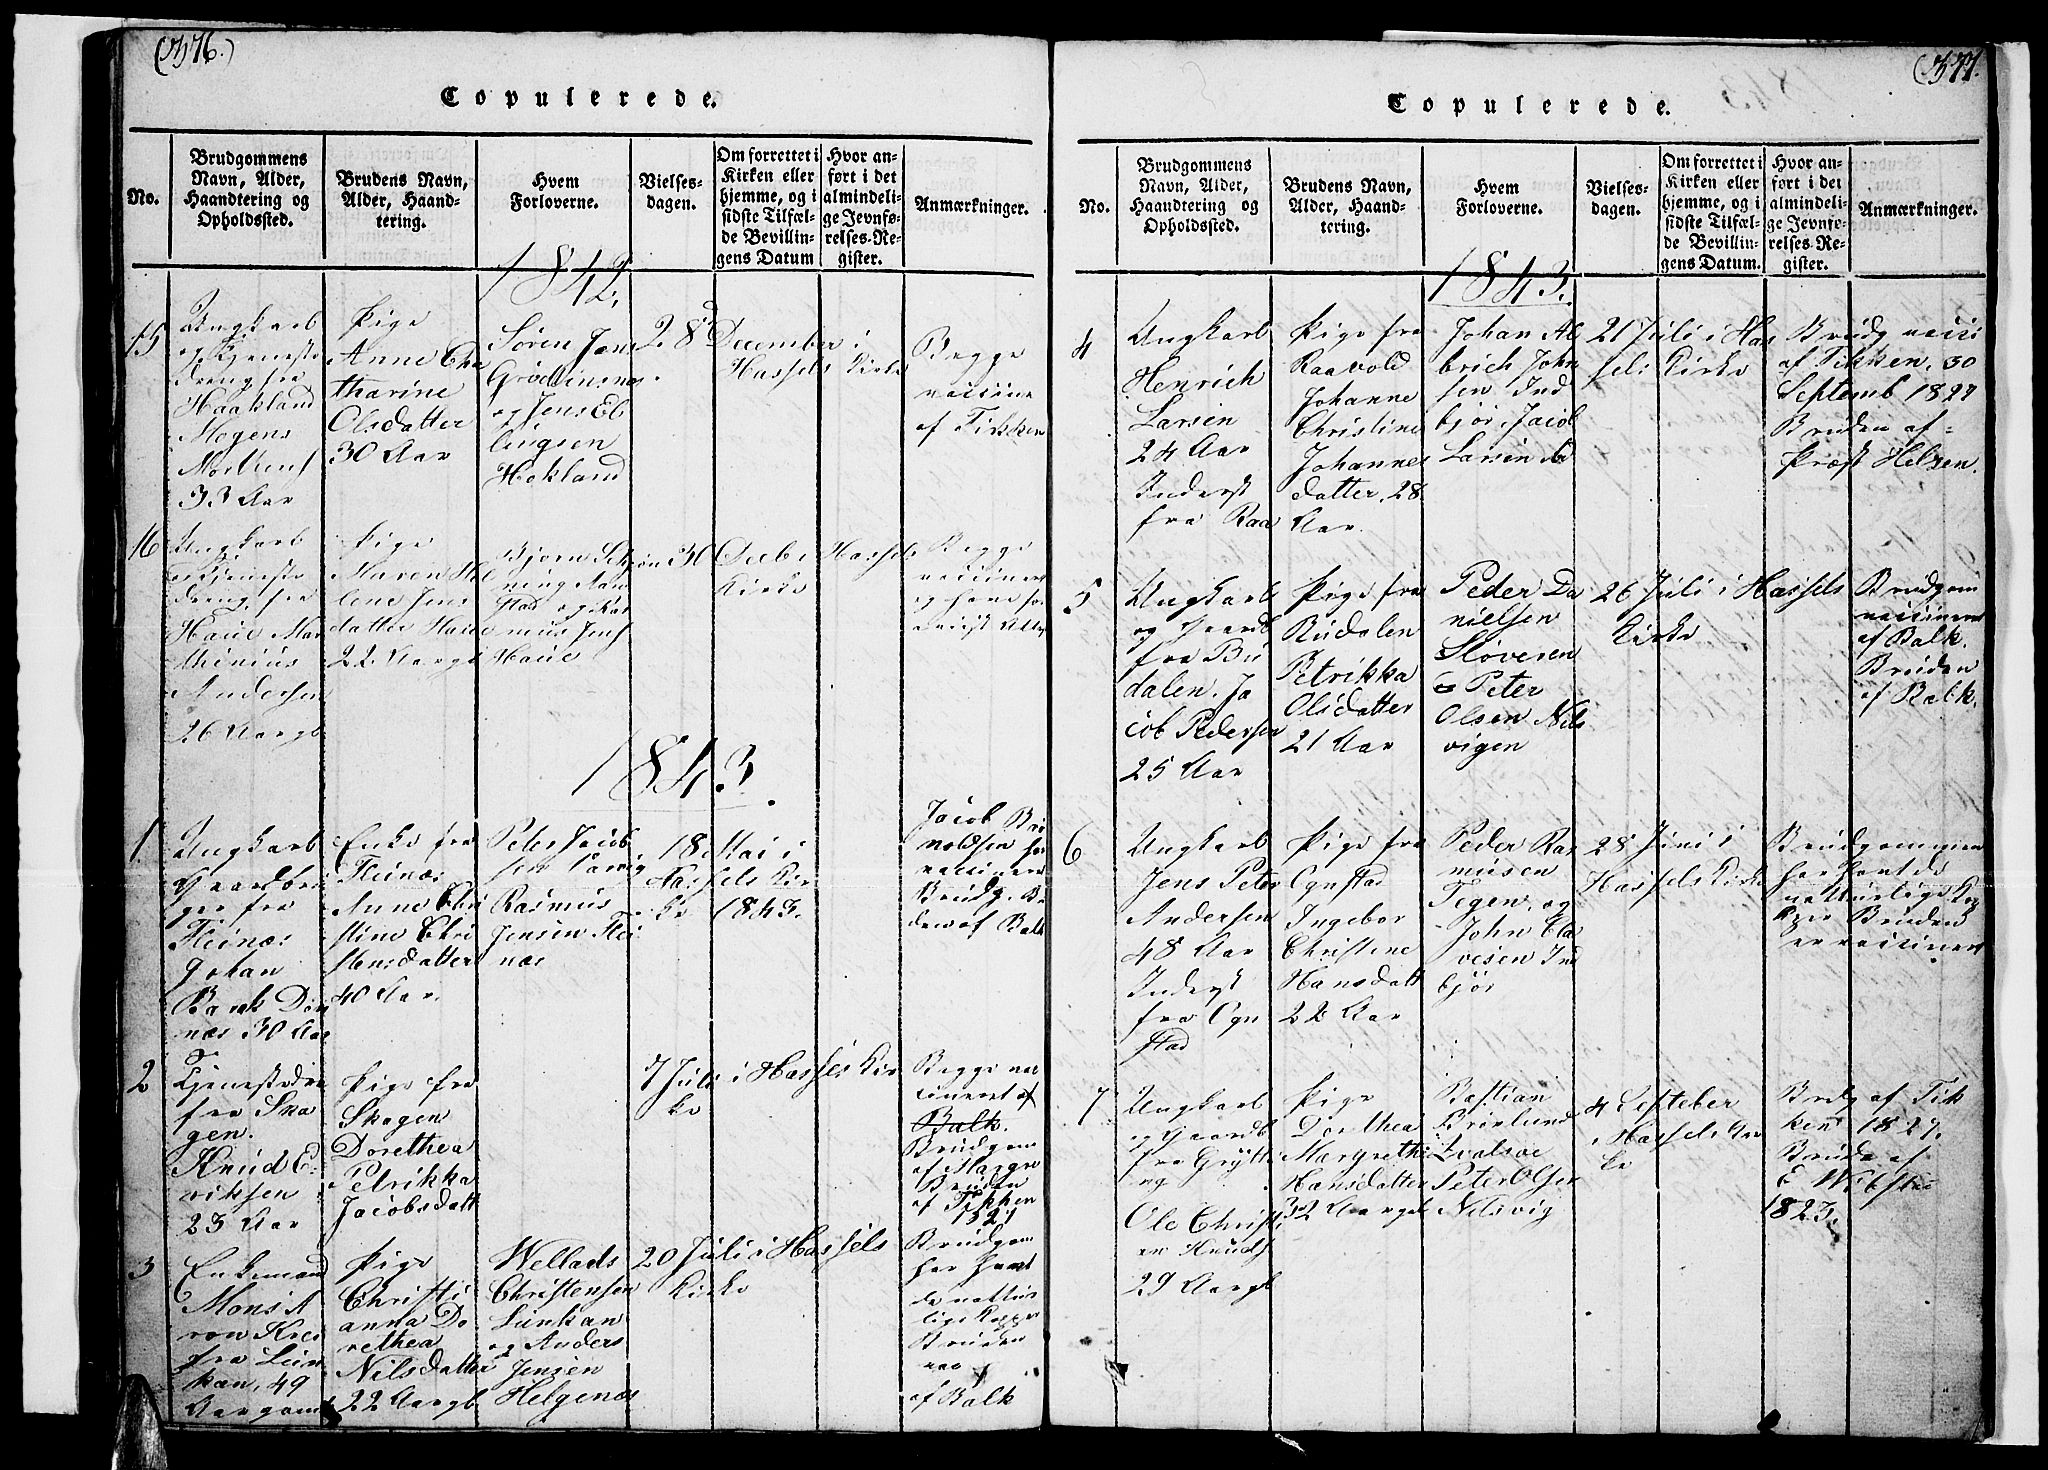 (376.)
Copulerede.
No.
Brudgommens
Navn, Alder,
Haandtering og
Opholdssted.
Brudens Navn,
Alder, Haand-
tering.
Hvem
Forloverne.
Vielses-
dagen.
Om forrettet i
Kirken eller
hjemme, og i
sidste Tilfæl-
de Bevillin-
gens Datum
Hvor an-
ført i det
almindeli-
ge Jevnfø-
relses-Re-
gister.
Anmærkninger.
1842.
15
Ungkarl
og Tjeneste
dreng fra
Haakland
Mogens
33 Aar
Pige
Anne Cha
tharine
Olsdatter
30 Aar
Søren Jens
og Jens El
lingsen
Hokland
28 December i
Hassels Kirke
Begge
vaccine
af Fikken
16
Ungkarl
og Tjeneste
dreng fra
Haue Mar
thinius
Andersen
26 Aargl
Pige
Maren He
lene Jens
datter Haue
22 Aargl
Bjørn
Haue
30 Decbr i Hassels
Kirke
Begge
1843.
1
Ungkarl
Gaardbru
ger fra
Fleinæs
Johan
næs 30 Aar
Enke fra
Fleinæs
Anne Chri
stine Chri
stensdatter
40 Aar.
Peter Jacob
sen
Rasmus
Jensen Flei
næs
18 Mai i
Hassels Kir
ke 1843.
Jacob
noldsen har
vaccineret
Brudg. Br
den af Balk
2
Tjenestedre
fra Ska
gen.
Knud E-
riksen
23 Aar
Pige fra
Skagen
Dorethea
Petrikka
Jacobsdatt
7 Juli i Hassels Kir
ke
Begge vac
cineret af
Balk.
Brudgom
af
Bruden
af Fikken
3
Enkemand
Mons A
ron
fra Lun
kan, 49
Aar gaml
Pige
Christi
anna Do
rethea
Nilsdatter
22 Aargl
Wellads
Christensen
Lunkan
og Anders
Jensen
Helgenæs
20 Juli i Hassels
Kirke
Brudgom
har havt
de nattur
lige Kopper
Bruden
vac
af Balk
(377.
Copulerede.
No.
Brudgommens
Navn, Alder,
Haandtering og
Opholdssted.
Brudens Navn,
Alder, Haand-
tering.
Hvem
Forloverne.
Vielses-
dagen.
Om forrettet i
Kirken eller
hjemme, og i
sidste Tilfæl-
de Bevillin-
gens Datum.
Hvor an-
ført i det
almindeli-
ge Jevnfø-
relses-Re-
gister.
Anmærkninger.
1843.
4
Ungkarl
Henrich
Larsen
24 Aar
Inderst
fra Raa
Pige fra
Raavold
Johanne
Christine
Johannes
datter, 28
Aar.
Johan Al
brich John
sen Ind
bjør, Jacob
Larsen
21 Juli i Has
sels Kirke
Brudg vacci
af Fikken, 30
Septemb 1827
Bruden af
Præst Helzen.
5
Ungkarl
og Gaardb
fra Bu
dalen. Ja
cob Pedersen
25 Aar
Pige fra
Budalen
Petrikka
Olsdatter
21 Aar
Peder Da
nielsen
Sløveren
Peter
Olsen Nils
vigen
26 Juli i Hassels
Kirke
Brudgom
vaccineret
af Balk.
Bruden
af Balk.
6
Ungkarl
Jens Peter
Andersen
48 Aar
Inderst
fra Ogn
stad
Pige fra
Ognstad
Ingebor
Christine
Hansdatt
22 Aar
Peder Ras
musen
Tegen, og
John Cla
vesen Ind
bjør
28 Juni i
Hassels Kirke
Brudgommen
har havt de
natturlige Ko
pper Bruden
er vaccineret
7
Ungkarl
og Gaardb
fra Grytti
ng
Ole Christi
an Knuds
29 Aargl
Pige
Dorthea
Margrethe
Hansdatter
32 Aargl
Bastian
Peter Olsen
Nilsvig
4 Septeber
i Hassels Kir
ke
Brdg af Fik
ken 1827.
Brude af
1823.